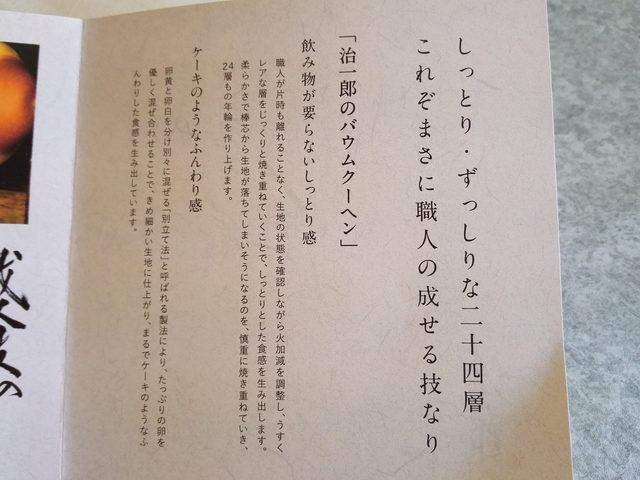 しっとり・ずっしりな二十四層
これぞまさに職人の成せる技なり
「治一郎のバウムクーヘン」
飲み物が要らないしっとり感
職人が片時も離れることなく、生地の状態を確認しながら火加減を調整し、うすく
レアな層をじっくりと焼き重ねていくことで、しっとりとした食感を生み出します。
柔らかさで棒芯から生地が落ちてしまいそうになるのを、慎重に焼き重ねていき、
24層もの年輪を作り上げます。
ケーキのようなふんわり感
卵黄と卵白を分け別々に混ぜる「別立て法」と呼ばれる製法により、たっぷりの卵を
優しく混ぜ合わせることで、きめ細かい生地に仕上がり、まるでケーキのようなふ
んわりした食感を生み出しています。